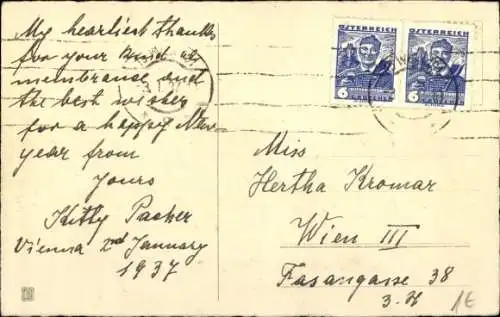 My heartiest thanks
for your kind re-
membrance and
the best wishes
for a happy New
year from
yours
Kitty Packer
Vienna 2nd January
1937
ÖSTERREICH
6
ÖSTERREICH
6
Miss
Hertha Kromar
Wien III
Fasangasse 38
1€